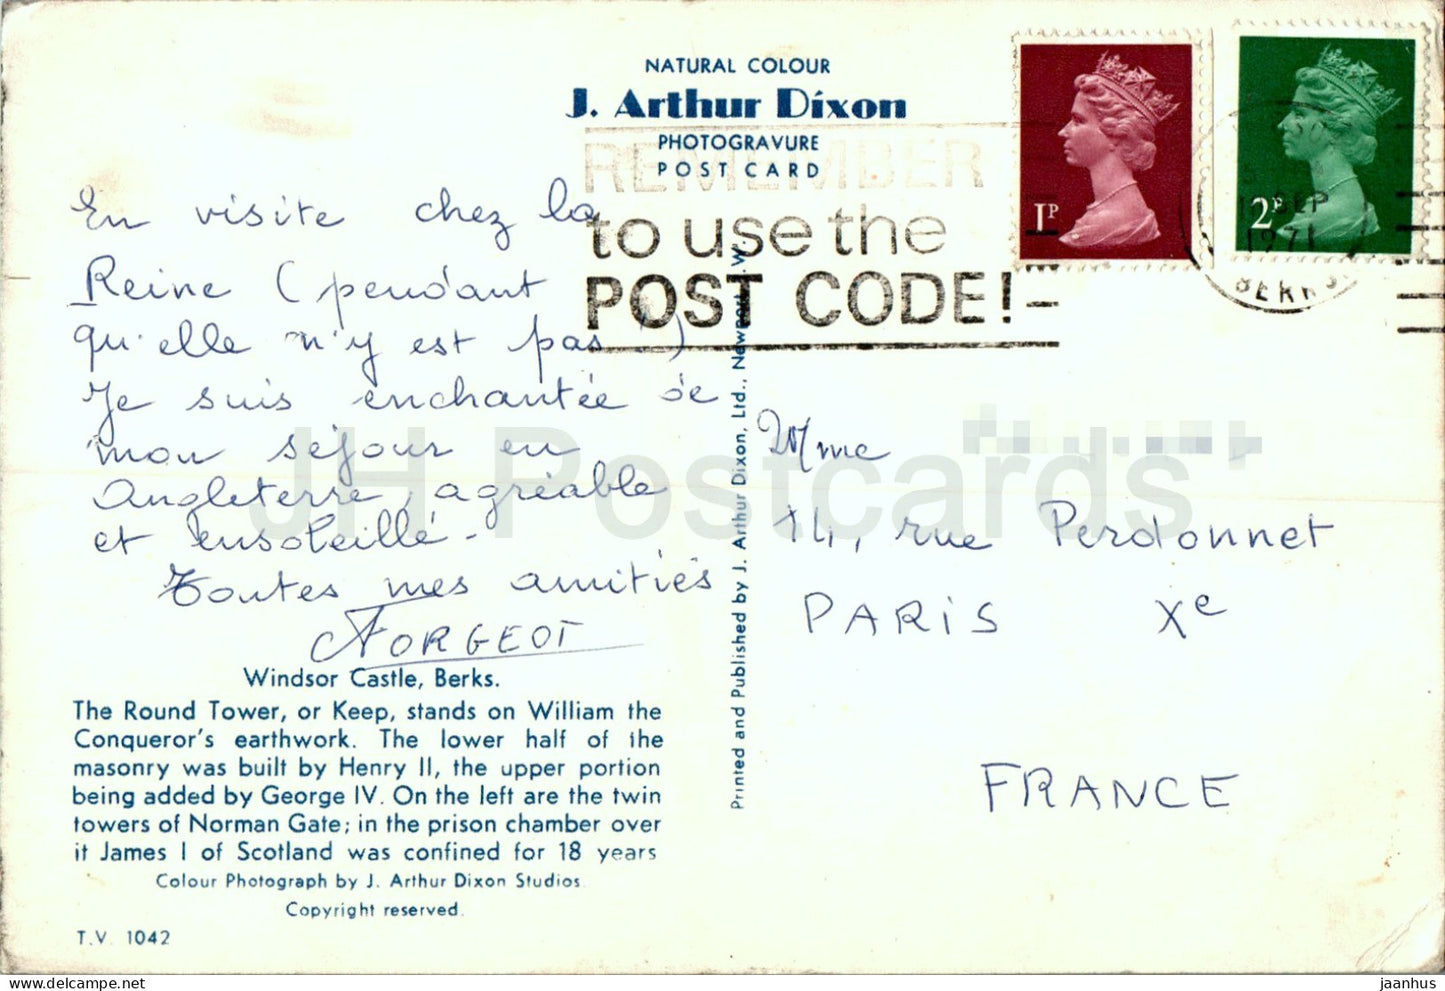 NATURAL COLOUR
J. Arthur Dixon
PHOTOGRAVURE
POST CARD
REMEMBER
to use the
POST CODE!
1P
2P
SEP
1971
BERKS
En visite chez la
Reine (pendant
qu'elle n'y est pas !)
Je suis enchantée de
mon séjour en
Angleterre, agréable
et ensoleillé -
Toutes mes amitiés
FORGEOT
Mme
14, rue Perdonnet
PARIS Xe
FRANCE
Windsor Castle, Berks.
The Round Tower, or Keep, stands on William the
Conqueror's earthwork. The lower half of the
masonry was built by Henry II, the upper portion
being added by George IV. On the left are the twin
towers of Norman Gate; in the prison chamber over
it James I of Scotland was confined for 18 years
Colour Photograph by J. Arthur Dixon Studios.
Copyright reserved.
T.V. 1042
Printed and Published by J. Arthur Dixon, Ltd., Newport I.W.
JH Postcards
Delcampe.net
jaanhus